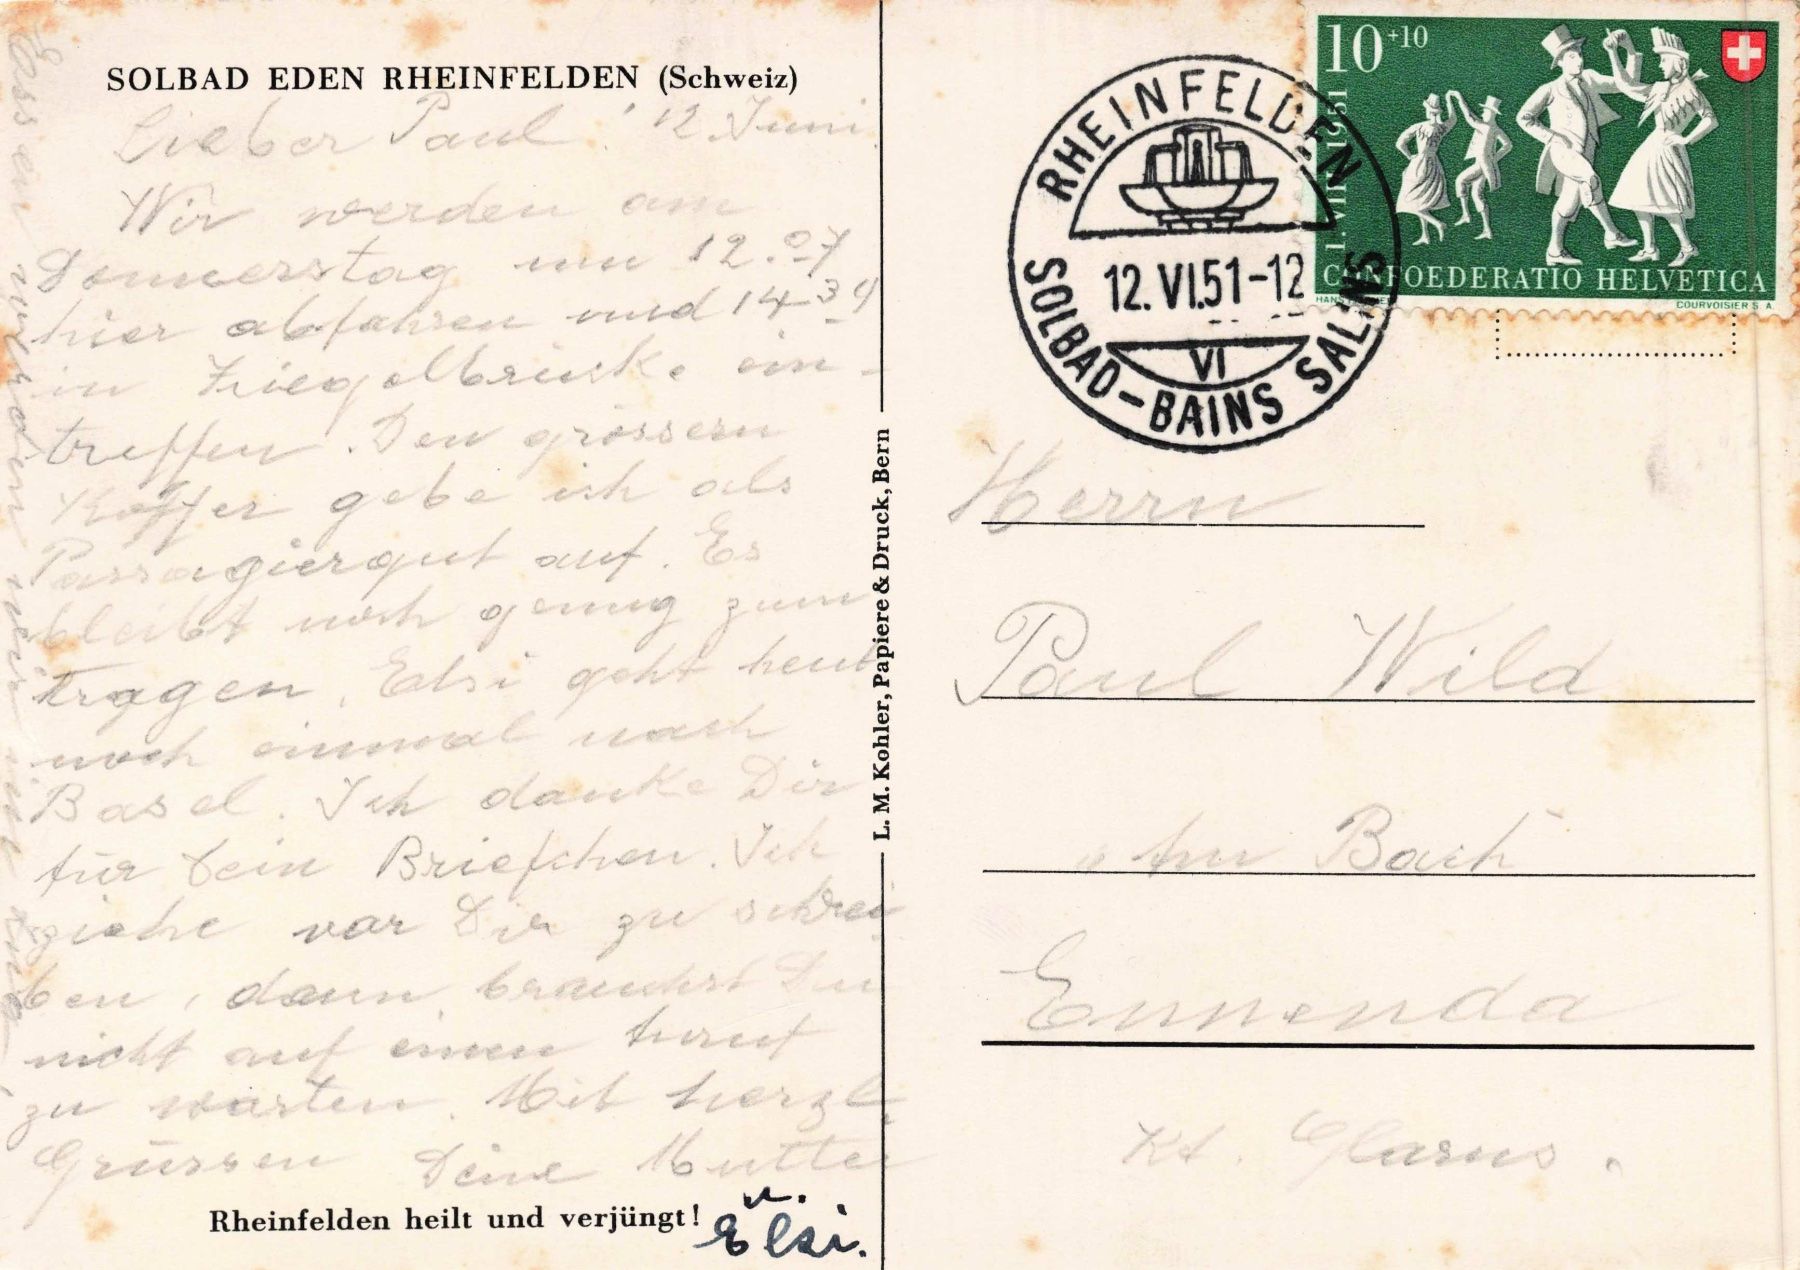 SOLBAD EDEN RHEINFELDEN (Schweiz)
Lieber Paul! 12. Juni.
Wir werden am
Donnerstag um 12.07
hier abfahren und 14.39
in Ziegelbrücke ein-
treffen. Den grössern
Koffer gebe ich als
Passagiergut auf. Es
bleibt noch genug zum
tragen. Elsi geht heute
noch einmal nach
Basel. Ich danke Dir
für Dein Briefchen. Ich
ziehe vor Dir zu schrei-
ben, dann brauchst Du
nicht auf einen Anruf
zu warten. Mit herzl.
Grüssen Deine Mutter
u.
Elsi.
Rheinfelden heilt und verjüngt!
Essen werden wir im Zug
L. M. Kohler, Papiere & Druck, Bern
RHEINFELDEN
12. VI. 51-12
VI
SOLBAD-BAINS SALINS
10+10
1. VIII. 1951
CONFOEDERATIO HELVETICA
COURVOISIER S. A.
Herrn
Paul Wild
Am Bach
Ennenda
Kt. Glarus.